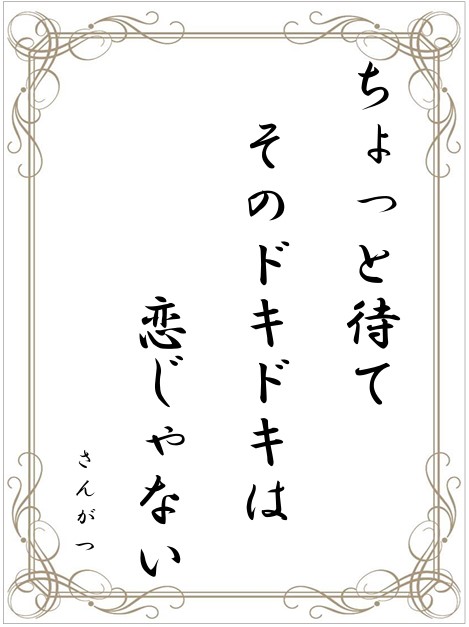 ちょっと待て
そのドキドキは
恋じゃない
さんがつ